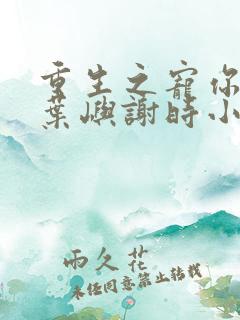 重生之寵你
葉嶼謝時小
雨久花
未经同意禁止转载